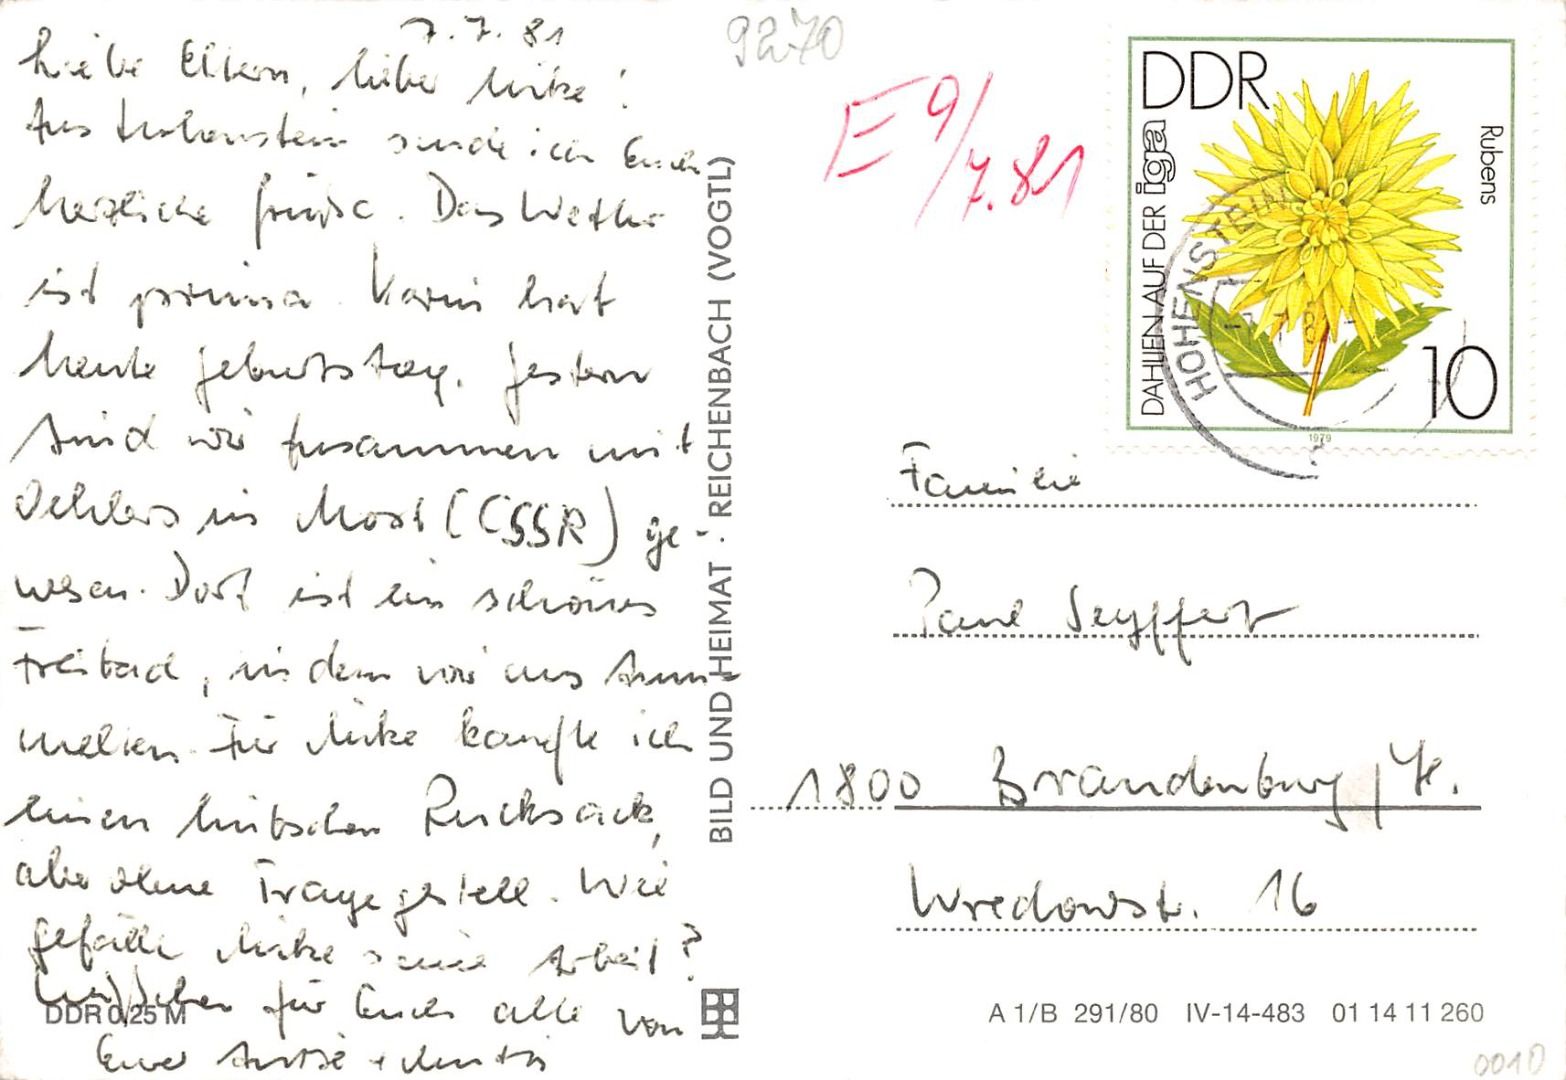 7.7.81
Liebe Eltern, lieber Mike!
Aus Hohenstein sende ich Euch
herzliche Grüße. Das Wetter
ist prima. Karin hat
heute Geburtstag. Gestern
sind wir zusammen mit
Oehlers in Most (CSSR) ge-
wesen. Dort ist ein schönes
Freibad, in dem wir uns
Für Mike kaufte ich
einen hübschen Rucksack,
aber ohne Tragegestell. Wie
gefällt Mike seine Arbeit?
für Euch alle von
Eurer
DDR 0,25 M
BILD UND HEIMAT · REICHENBACH (VOGTL)
9270
E 9/7.81
DDR
DAHLIEN AUF DER iga
Rubens
10
1979
HOHENSTEIN
Familie
Paul Seyffert
1800 Brandenburg/H.
Wredowstr. 16
A 1/B 291/80 IV-14-483 01 14 11 260
0010